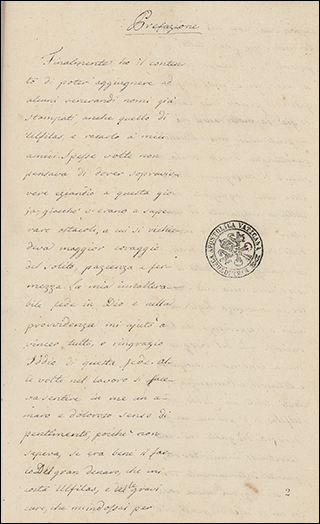 Prefazione
Finalmente ho il conten-
to di poter aggiugnere ad
alcuni venerandi nomi già
stampati anche quello di
Ulfilas, e recarlo a' miei
amici. Spesse volte non
pensava di dover sopravvi-
vere eziandio a questa gio-
ja; giacchè si erano a supe-
rare ostacoli, a cui si richie-
deva maggior coraggio
del solito, pazienza e fer-
mezza. La mia inaltera-
bile fede in Dio e nella
provvidenza mi ajutò a
vincer tutto, e ringrazio
Iddio di questa fede. Al-
le volte nel lavoro si face-
va sentire in me un a-
maro e doloroso senso di
pentimento, poichè non
sapeva, se era bene il far-
lo. Del gran denaro, che mi
costa Ulfilas, e delle gravi
cure, che m'indossai per
BIBLIOTHECA APOSTOLICA VATICANA
2